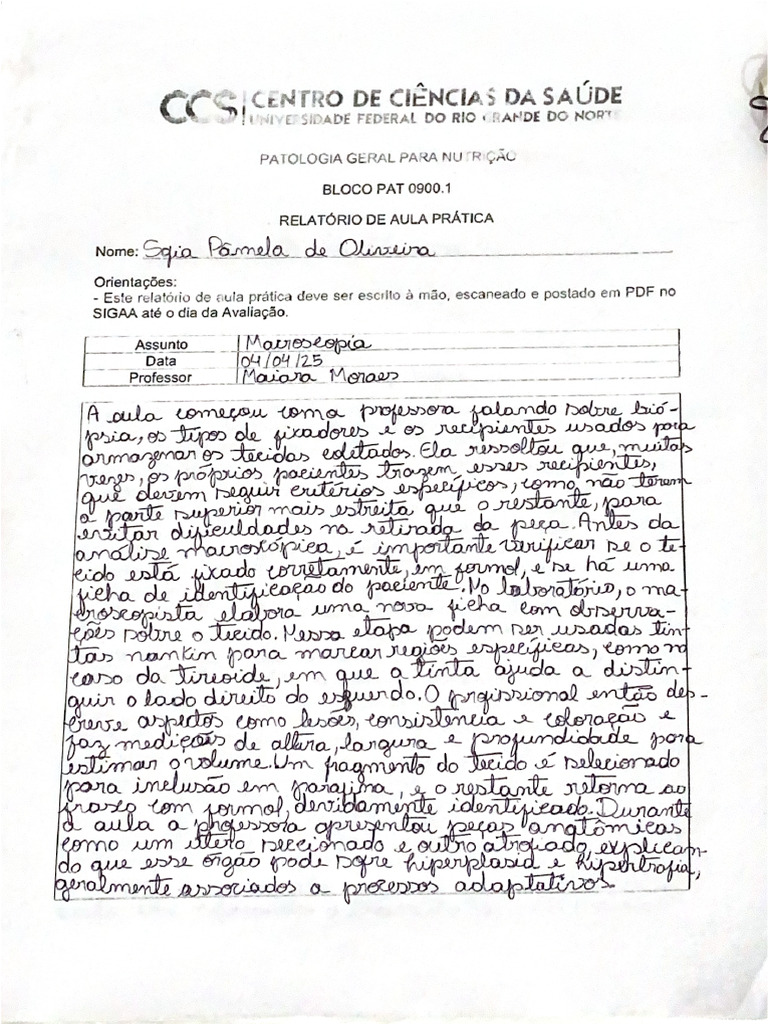 CCS CENTRO DE CIÊNCIAS DA SAÚDE
UNIVERSIDADE FEDERAL DO RIO GRANDE DO NORTE
PATOLOGIA GERAL PARA NUTRIÇÃO
BLOCO PAT 0900.1
RELATÓRIO DE AULA PRÁTICA
Nome: Sofia Pâmela de Oliveira
Orientações:
- Este relatório de aula prática deve ser escrito à mão, escaneado e postado em PDF no
SIGAA até o dia da Avaliação.
Assunto Macroscopia
Data 04/04/25
Professor Maiara Moraes
A aula começou com a professora falando sobre bió-
psia, os tipos de fixadores e os recipientes usados para
armazenar os tecidos coletados. Ela ressoltou que, muitas
vezes, os próprios pacientes trazem esses recipientes,
que devem seguir critérios específicos, como não terem
a parte superior mais estreita que o restante, para
evitar dificuldades na retirada da peça. Antes da
análise macroscópica, é importante verificar se o te-
cido está fixado corretamente, em formol, e se há uma
ficha de identificação do paciente. No laboratório, o ma-
croscopista elabora uma nova ficha com observa-
ções sobre o tecido. Nessa etapa podem ser usadas tin-
tas nankin para marcar regiões específicas, como no
caso da tireoide, em que a tinta ajuda a distin-
guir o lado direito do esquerdo. O profissional então des-
creve aspectos como lesões, consistência e coloração e
faz medições de altura, largura e profundidade para
estimar o volume. Um fragmento do tecido é selecionado
para inclusão em parafina, e o restante retorna ao
frasco com formol, devidamente identificado. Durante
a aula a professora apresentou peças anatômicas
como um útero seccionado e outro atrofiado, explican-
do que esse órgão pode sofre hiperplasid e hipertrofia,
geralmente associados a processos adaptativos.